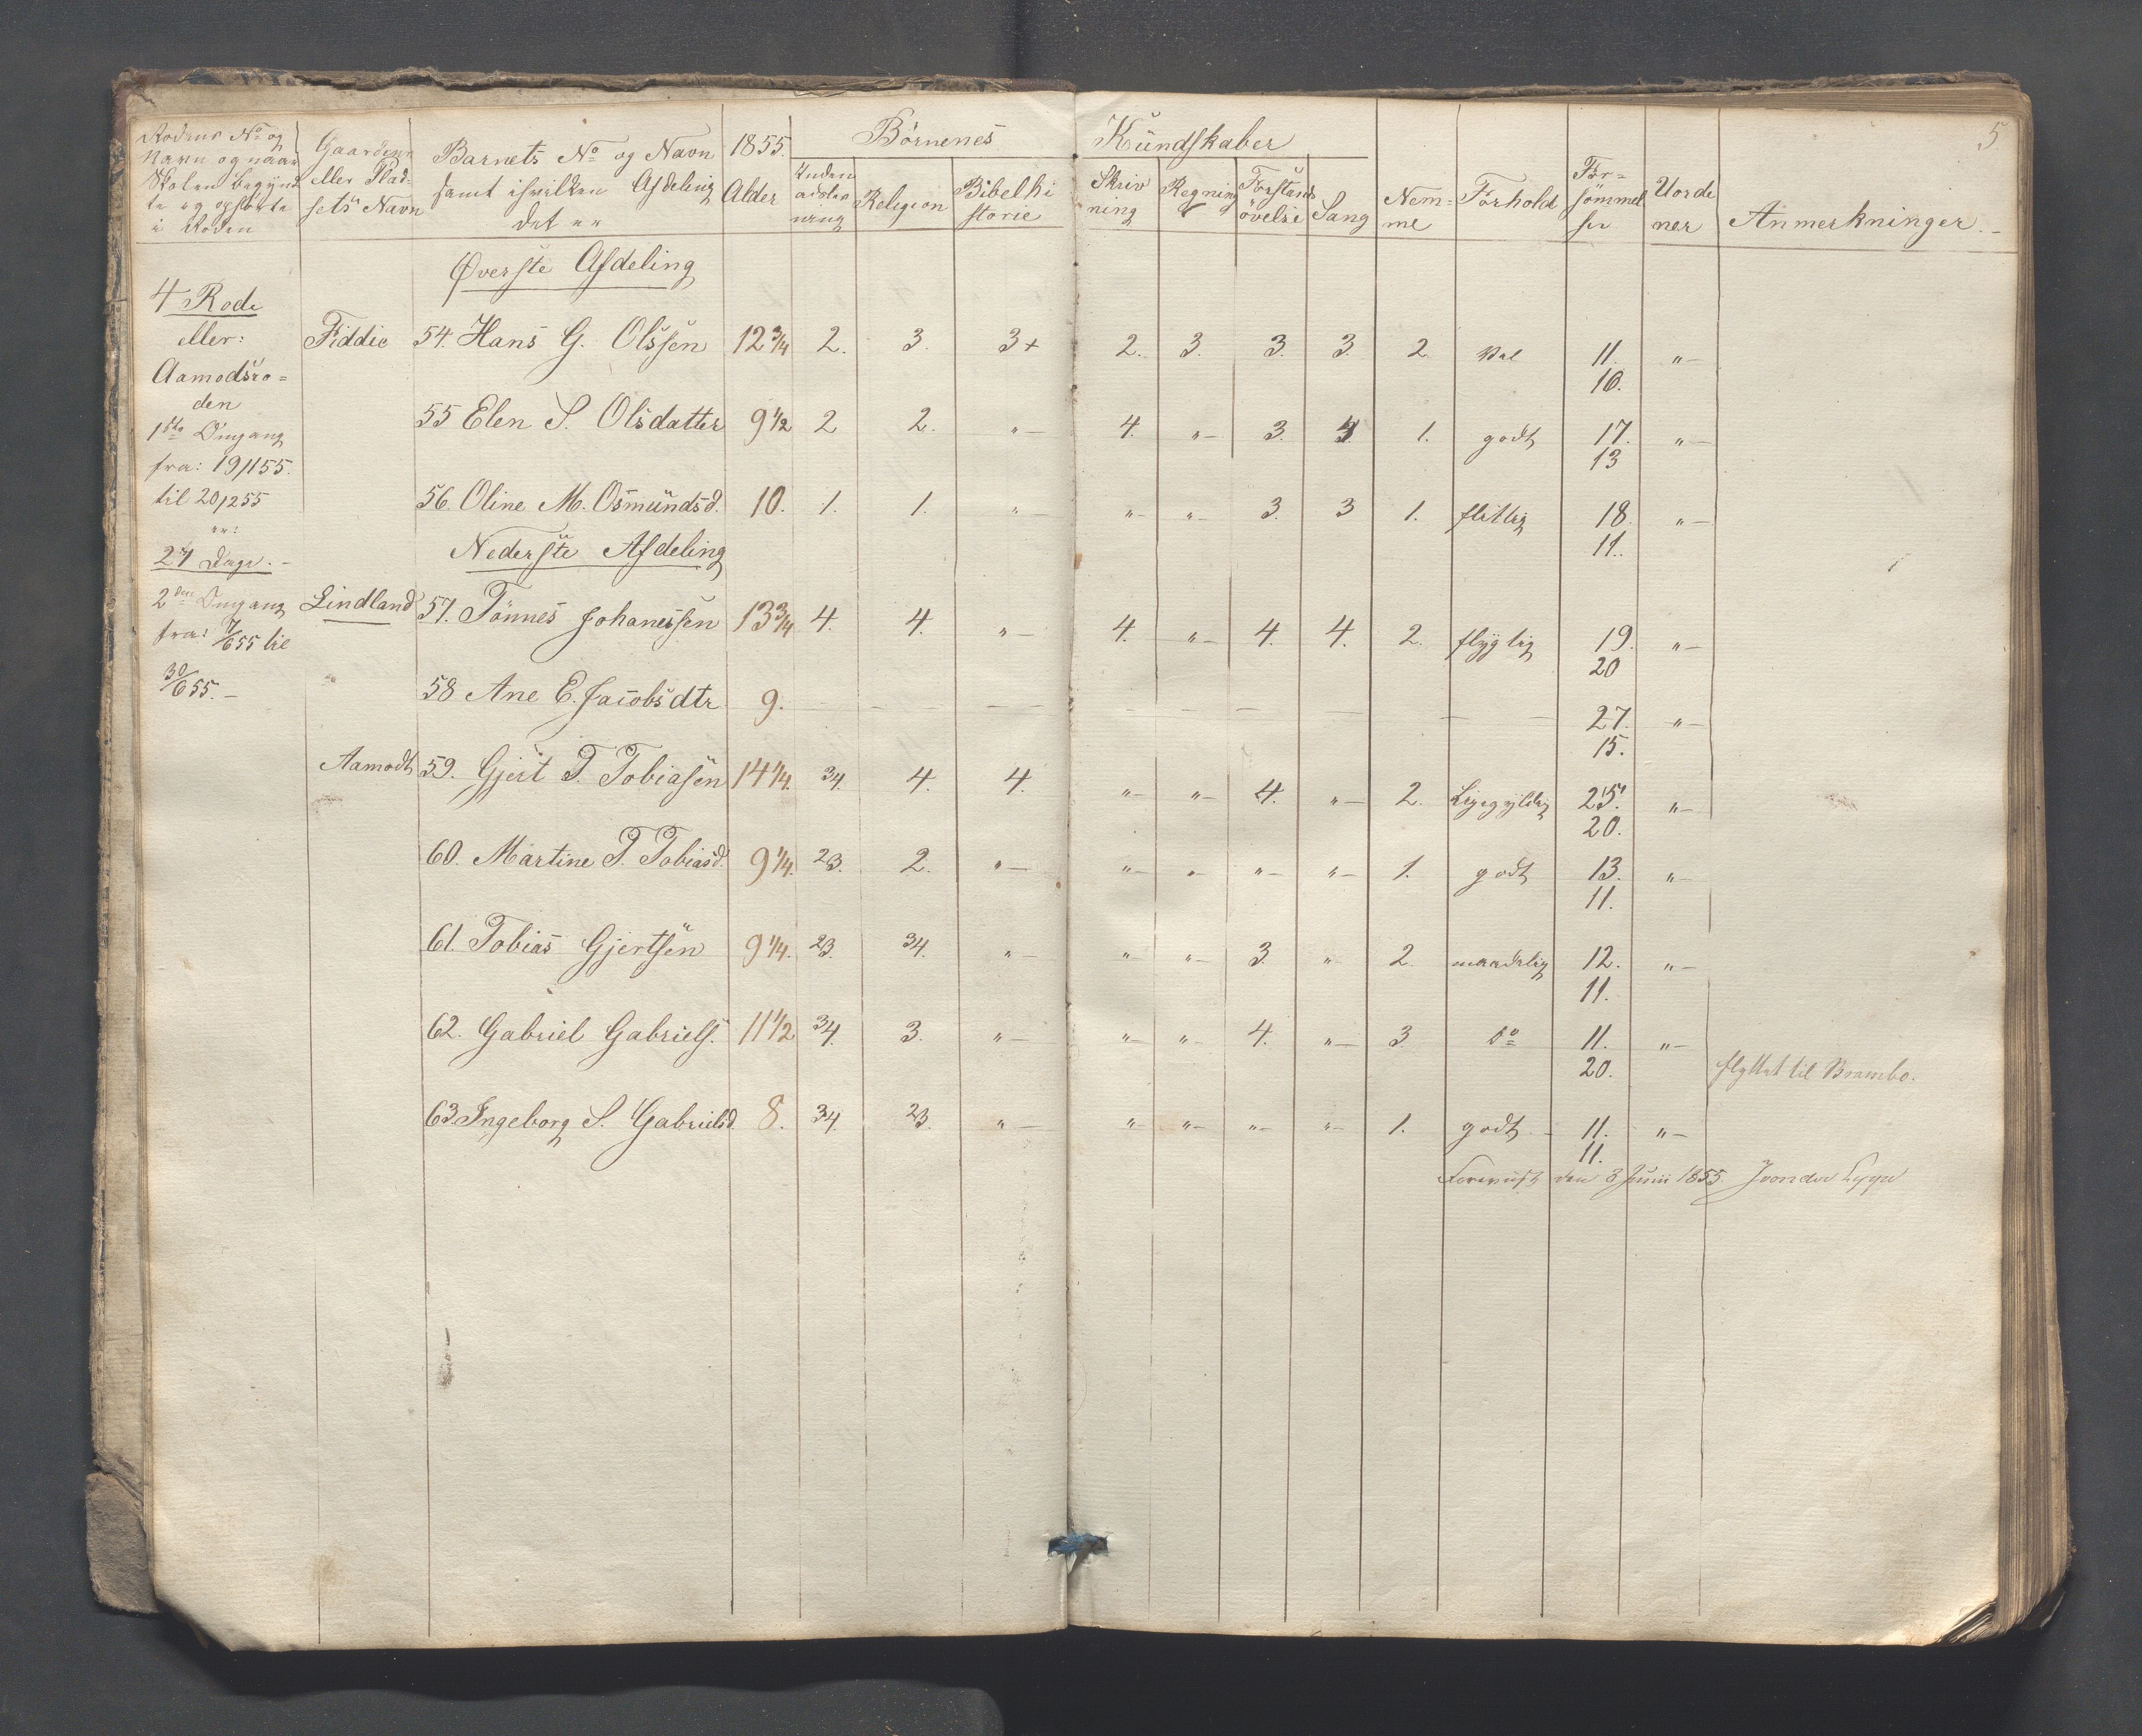 5
Rodens No og Navn og naar Skolen begyndte og opførte i Roden
Gaardens eller Pladsets Navn
Barnets No og Navn samt i hvilken Afdeling det er
1855. Alder
Børnenes Kundskaber
Religion
Bibelhistorie
Skrivning
Regning
Forstandsövelse
Sang
Nemme
Forhold
Forsömmelser
Uordener
Anmerkninger.
Øverste Afdeling
4 Rode
eller:
Aamodsro=
den
1ste Omgang
fra: 19/1 55.
til 20/2 55
er:
27 Dage. -
2den Omgang
fra: 7/6 55 til
30/6 55. -
Fiddie 54. Hans G. Olssen 12 3/4 2. 3. 3+ 2. 3. 3. 3. 2. Vel 11. "-
10.
55 Elen S. Olsdatter 9 1/2 2 2. "- 4. "- 3. 4. 1. godt 17. "-
13
56. Oline M. Osmundsd. 10. 1. 1. "- "- "- 3. 3 1. flittig 18. "-
11.
Nederste Afdeling
Lindland 57. Tönnes Johanessen 13 3/4 4. 4. "- 4. "- 4. 4. 2. flygtig 19. "-
20
58 Ane E. Jacobsdtr 9. - - - - - - - - - 27. "-
15.
Aamodt 59. Gjert T. Tobiasen 14 1/4. 34. 4. 4. "- "- 4. "- 2. Ligegyldig 25. "-
20.
60. Martine T. Tobiasd. 9 1/4. 23. 2. "- "- " "- "- 1. godt 13. "-
11.
61. Tobias Gjertsen 9 1/4. 23. 34. "- "- "- 3. "- 2. maadelig 12. "-
11.
62. Gabriel Gabriels. 11 1/2 34. 3. "- "- "- 4. "- 3. do 11. "-
20. flyttet til Brambo.
63. Ingeborg S. Gabrielsd. 8. 34. 23. "- "- "- "- "- 1. godt - 11. "-
11.
Foreviist den 8 Junii 1855